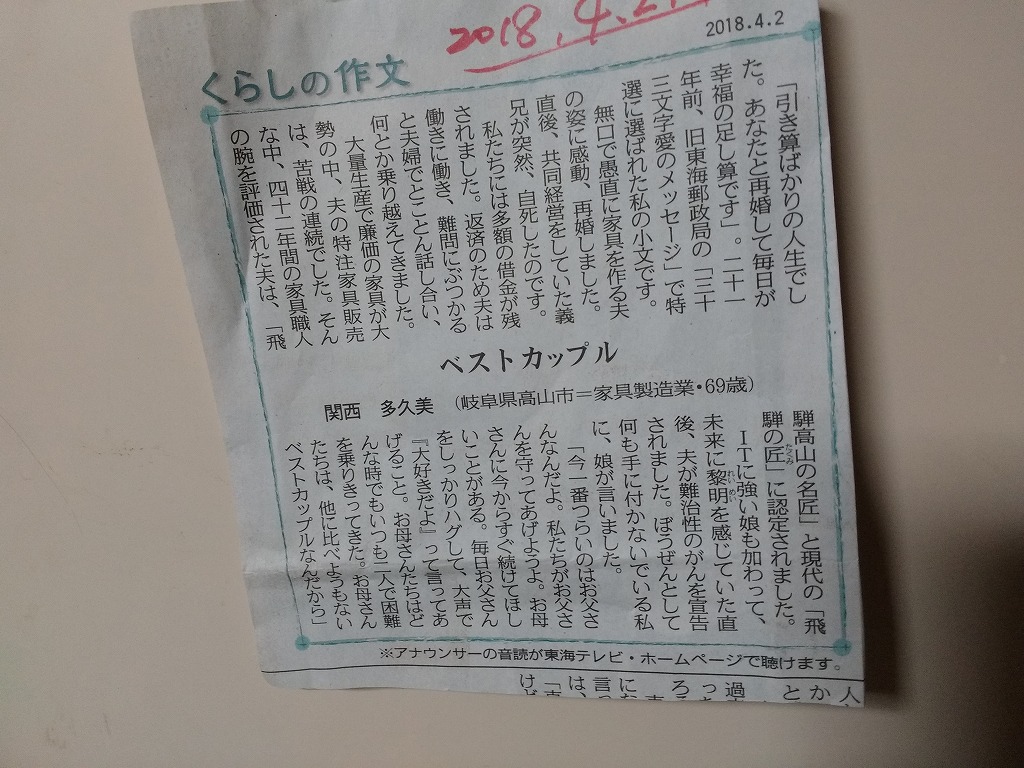 2018.4.2
2018.4.2
くらしの作文
「引き算ばかりの人生でし
た。あなたと再婚して毎日が
幸福の足し算です」。二十一
年前、旧東海郵政局の「三十
三文字愛のメッセージ」で特
選に選ばれた私の小文です。
無口で愚直に家具を作る夫
の姿に感動、再婚しました。
直後、共同経営をしていた義
兄が突然、自死したのです。
私たちには多額の借金が残
されました。返済のため夫は
働きに働き、難問にぶつかる
と夫婦でとことん話し合い、
何とか乗り越えてきました。
大量生産で廉価の家具が大
勢の中、夫の特注家具販売
は、苦戦の連続でした。そん
な中、四十二年間の家具職人
の腕を評価された夫は、「飛
ベストカップル
関西 多久美 (岐阜県高山市=家具製造業・69歳)
騨高山の名匠」と現代の「飛
騨の匠」に認定されました。
たくみ
ITに強い娘も加わって、
未来に黎明を感じていた直
れいめい
後、夫が難治性のがんを宣告
されました。ぼうぜんとして
何も手に付かないでいる私
に、娘が言いました。
「今一番つらいのはお父さ
んなんだよ。私たちがお父さ
んを守ってあげようよ。お母
さんに今からすぐ続けてほし
いことがある。毎日お父さん
をしっかりハグして、大声で
『大好きだよ』って言ってあ
げること。お母さんたちはど
んな時でもいつも二人で困難
を乗りきってきた。お母さん
たちは、他に比べようもない
ベストカップルなんだから」
※アナウンサーの音読が東海テレビ・ホームページで聴けます。